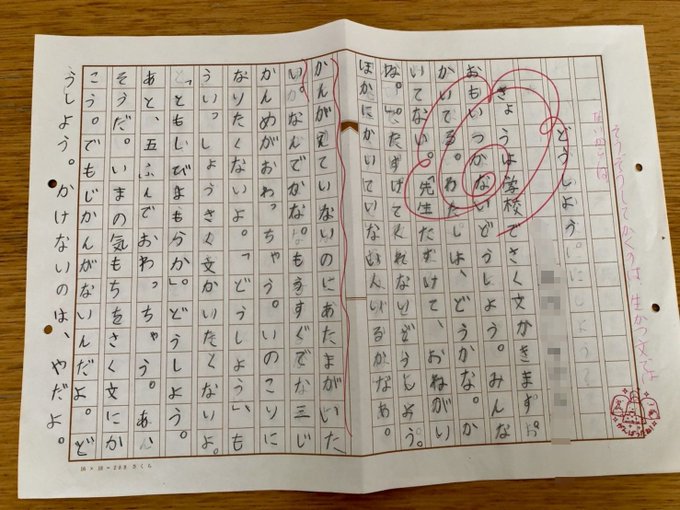 そうぞうしてかくのは、生かつ文では
どうしよう。
きょうは学校でさく文がきます。
おもいつかないどうしよう。みんな
かいてる。わたしは、どうかな。か
いてない。「先生だずけて、おねがい
な。」だずけてくれないどうしよう。
ほかにかいていないんいるかなあ。
かんがえていないのにあたまがいた
い。なんでかな。もうすぐでな三じ
かんめがおわっちゃう。いのこりに
なりたくないよ。「どうしよう」、も
ういっしょうさく文かいたくないよ。
どうしよう。
あと、五ふんでおわっちゃう。あ、
そうだ。いまの気もちをさく文にか
こう。でもじかんがないんだよ。ど
うしよう。かけないのは、やだよ。
16×18=288 さくら